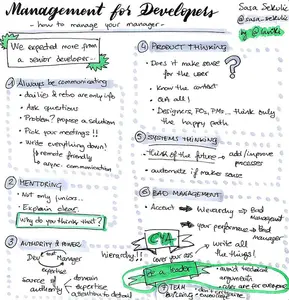 Management for Developers
- how to manage your manager -
Sasa Sekulic
@sasa_sekulic
by @
We expected more from
a senior developer...
① Always be communicating
• dailies & retro are only info
• Ask questions
• Problem? propose a solution
• Pick your meetings!!
• Write everything down!
↳ remote friendly
↳ async communication
② MENTORING
• Not only juniors...
• Explain clear.
Why do you think that?
③ AUTHORITY & POWER
Dev Manager
expertise
Source of authority
domain
expertise
attention to detail
hierarchy!!
④ PRODUCT THINKING
• Does it make sense
for the user?
• Know the context
• Ask all!
• Designers, POs, PMs, think only
the happy path
⑤ SYSTEMS THINKING
- think of the future → add/improve
processes
- automate if make sense
⑥ BAD MANAGEMENT
• Accept → hierarchy → Bad
management
↳ your performance → Bad
manager
CYA
cover your ass
→ write all
the things!
Be a leader
→ avoid technical
arguments
are for everyone
⑦ TEAM
BUILDING